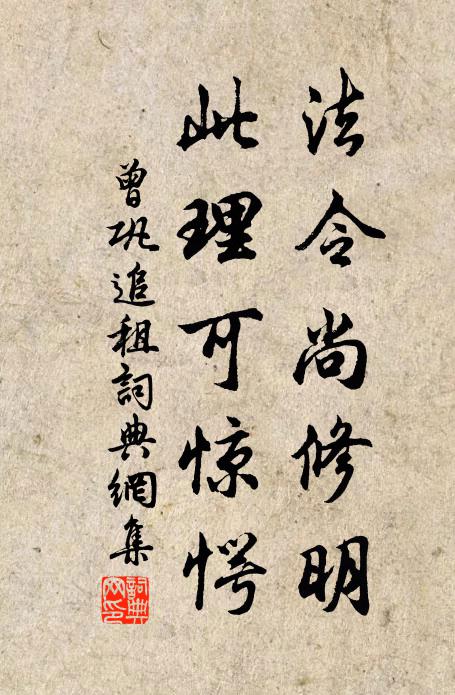 法令尚修明
此理可惊愕
曾巩追租詞典網集
詞典网印